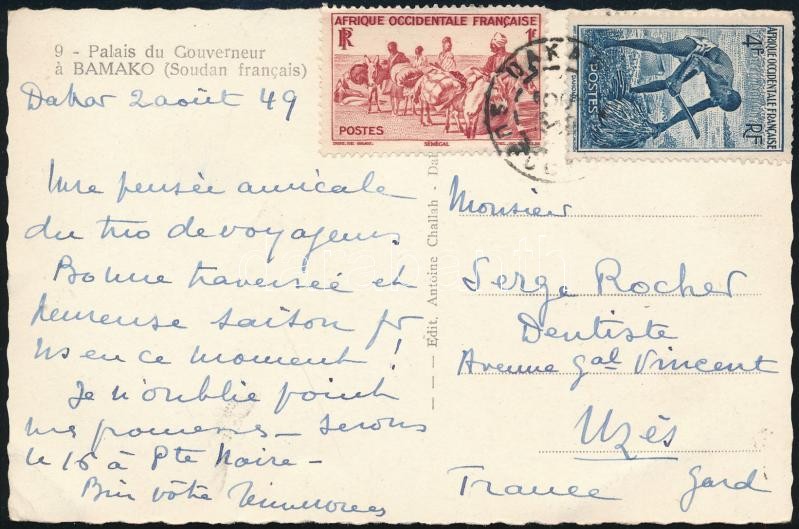 9 - Palais du Gouverneur
à BAMAKO (Soudan français)
Dakar 2 août 49
Une pensée amicale
du trio de voyageurs.
Bonne traversée et
heureuse saison pr
ns en ce moment !
Je n'oublie point
mes promesses - serons
le 16 à Pte Noire -
Bien vôtre
AFRIQUE OCCIDENTALE FRANÇAISE
RF
1F
POSTES
SÉNÉGAL
AFRIQUE OCCIDENTALE FRANÇAISE
4F
POSTES
RF
DAKAR
Edit. Antoine Challah - Da
Monsieur
Serge Rocher
Dentiste
Avenue Gal Vincent
Uzès
France Gard